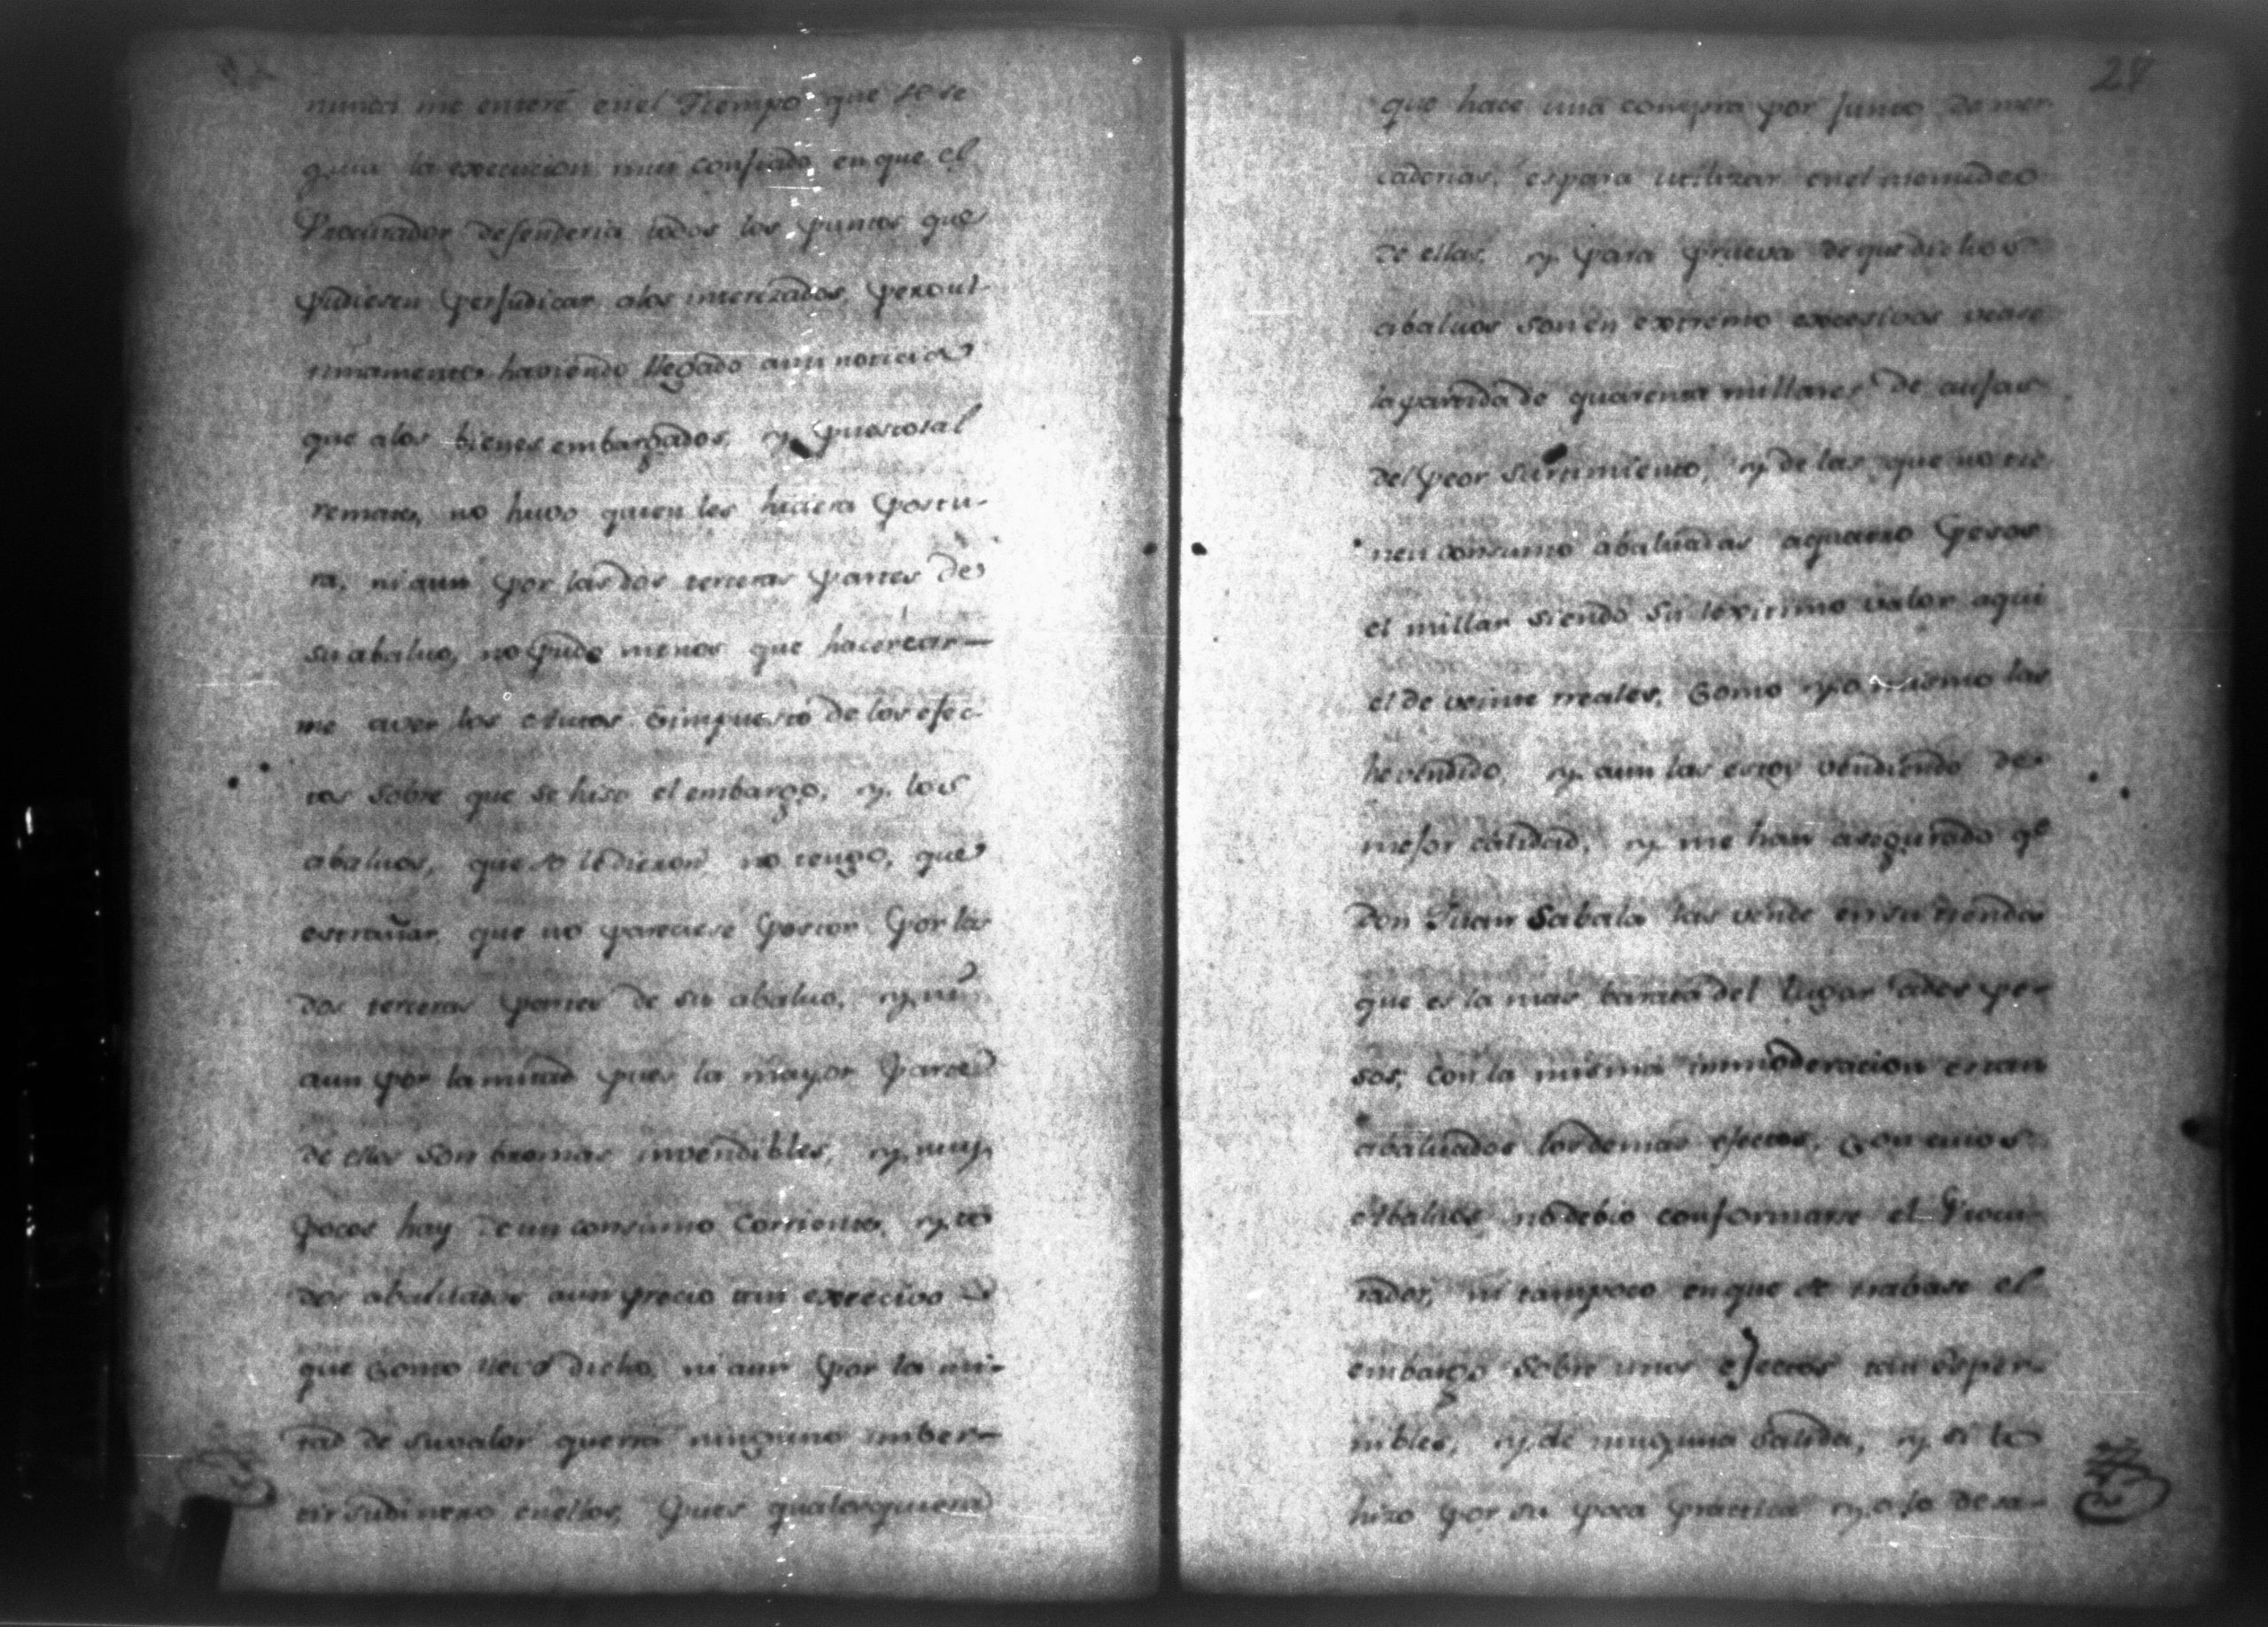 nunca me enteré en el Tiempo que se se
guia la execucion mui confiado en que el
Procurador defenderia todos los puntos que
pudiesen perjudicar alos interezados, pero ul-
timamente haviendo llegado ami noticia
que alos bienes embargados, y puestos al
remate, no huvo quien les hiciera postu-
ra, ni aun por las dos terceras partes de
su abaluo, no pude menos que hacer
me aver los Autos é impuesto de los efec-
tos sobre que se hiso el embargo, y los
abaluos, que se le dieron no tengo, que
estrañar, que no pareciese Postor por las
dos terceras partes de su abaluo, y ni
aun por la mitad pues la mayor parte
de ellos son bromas invendibles, y muy
pocos hay de un consumo corriente, y to
dos abaluados aun precio tan execivo
que como llevo dicho, ni aun por la mi-
tad de su valor querrá ninguno imber-
tir su dinero en ellos, Pues qualesquiera
27
que hace una compra por junto de mer-
caderias, es para utilizar en el menudeo
de ellas, y para prueva de que dichos
abaluos son en extremo excesivos vease
la partida de quarenta millares de aujas
del peor surtimiento, y de las que no tie
nen consumo abaluadas aquatro pesos
el millar siendo su lexitimo valor aqui
el de veinte rreales, como yo mismo las
he vendido, y aun las estoy vendiendo de
mejor calidad, y me han asegurado qe
Don Juan Sabala las vende en su tienda
que es la mas barata del Lugar ados pe-
sos, con la misma immoderacion estan
abaluados los demas efectos, con cuios
Abaluos no debio conformarse el Procu-
rador, ni tampoco en que se trabase el
embargo sobre unos efectos tan
nibles, y de ninguna salida, y si lo
hizo por su poca practica y